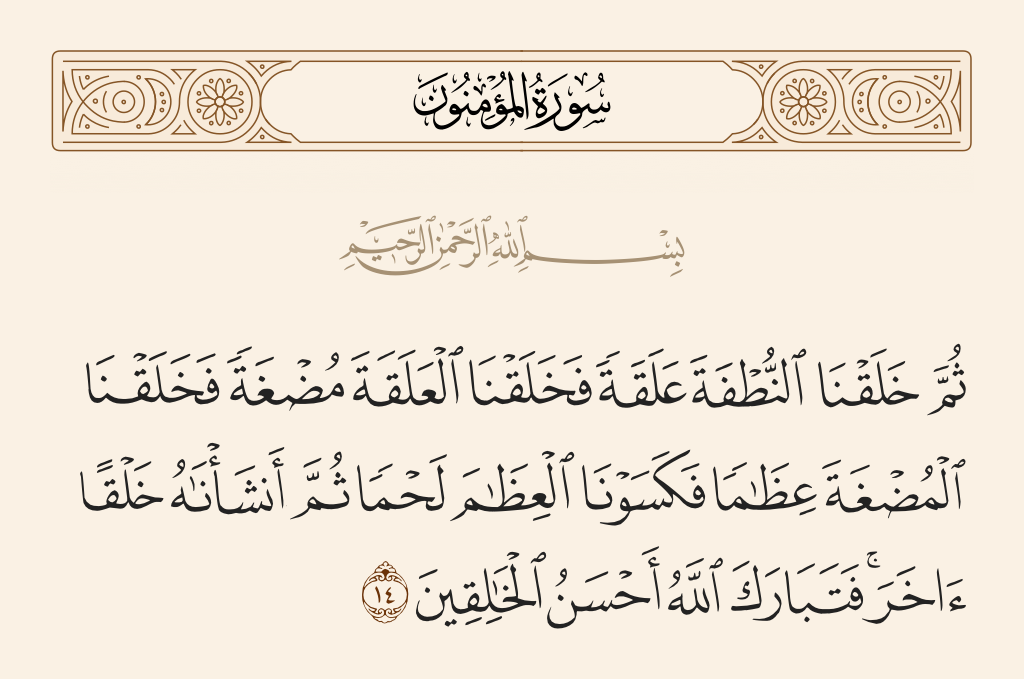 سُورَةُ الْمُؤْمِنُونَ
بِسْمِ ٱللَّهِ ٱلرَّحْمَٰنِ ٱلرَّحِيمِ
ثُمَّ خَلَقْنَا ٱلنُّطْفَةَ عَلَقَةً فَخَلَقْنَا ٱلْعَلَقَةَ مُضْغَةً فَخَلَقْنَا
ٱلْمُضْغَةَ عِظَٰمًا فَكَسَوْنَا ٱلْعِظَٰمَ لَحْمًا ثُمَّ أَنشَأْنَٰهُ خَلْقًا
ءَاخَرَ ۚ فَتَبَارَكَ ٱللَّهُ أَحْسَنُ ٱلْخَٰلِقِينَ ١٤